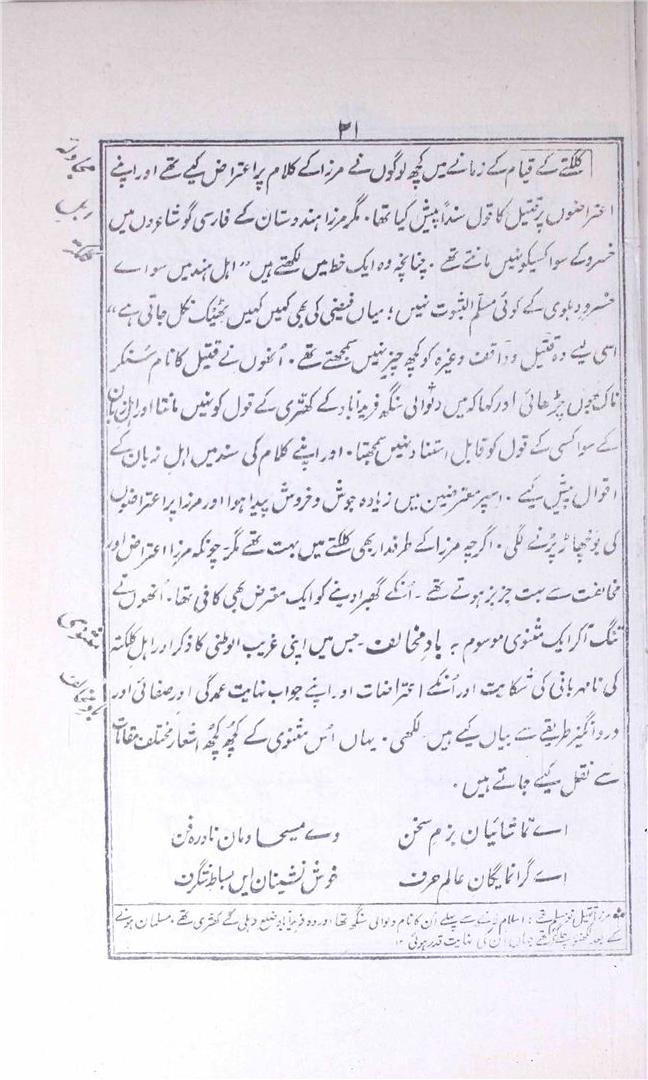 ۲۱
کلکتے کے قیام کے زمانے میں کچھ لوگوں نے مرزا کے کلام پر اعتراض کیے تھے اور اپنے
اعتراضوں پر قتیل کا قول سنداً پیش کیا تھا۔ مگر مرزا ہندوستان کے فارسی گو شاعروں میں
خسرو کے سوا کسیکو نہیں مانتے تھے۔ چنانچہ وہ ایک خط میں لکھتے ہیں "اہل ہند میں سواے
خسرو دہلوی کے کوئی مسلّم الثبوت نہیں؛ میاں فیضی کی بھی کہیں کہیں ٹھیک نکل جاتی ہے"
اسی لیے وہ قتیل و واقف وغیرہ کو کچھ چیز نہیں سمجھتے تھے۔ اُنھوں نے قتیل کا نام سُنکر
ناک بھوں چڑھائی اور کہا کہ میں دِلوالی سنگھ فریدآباد کے کھتری کے قول کو نہیں مانتا اور اہل زبان
کے سوا کسی کے قول کو قابل استناد نہیں سمجھتا۔ اور اپنے کلام کی سند میں اہلِ زبان کے
اقوال پیش کیے۔ اسپر معترضین میں زیادہ جوش و خروش پیدا ہوا اور مرزا پر اعتراضوں
کی بوچھاڑ پڑنے لگی۔ اگرچہ مرزا کے طرفدار بھی کلکتے میں بہت تھے مگر چونکہ مرزا اعتراض اور
مخالفت سے بہت جزبز ہوتے تھے۔ اُنکے گھبرا دینے کو ایک معترض بھی کافی تھا۔ اُنھوں نے
تنگ آکر ایک مثنوی موسوم بہ بادِ مخالف۔ جس میں اپنی غریب الوطنی کا ذکر اور اہل کلکتہ
کی نامہربانی کی شکایت اور اُنکے اعتراضات اور اپنے جواب نہایت عمدگی اور صفائی اور
درد انگیز طریقے سے بیاں کیے ہیں۔ لکھی۔ یہاں اُس مثنوی کے کچھ کچھ اشعار مختلف مقامات
سے نقل کیے جاتے ہیں۔
اے تماشائیان بزم سخن وے مسیحا دمان نادرہ فن
اے گرانمایگان عالم حرف خوش نشینان ایں بساط شگرف
مرزا قتیل نو مسلم تھے؛ اسلام لانے سے پہلے اُن کا نام دلوالی سنگھ تھا اور وہ فریدآباد ضلع دہلی کے کھتری تھے۔ مسلمان ہونے
کے بعد لکھنؤ چلے گئے تھے جہاں اُن کی نہایت قدر ہوئی ۱۲
مثنوی